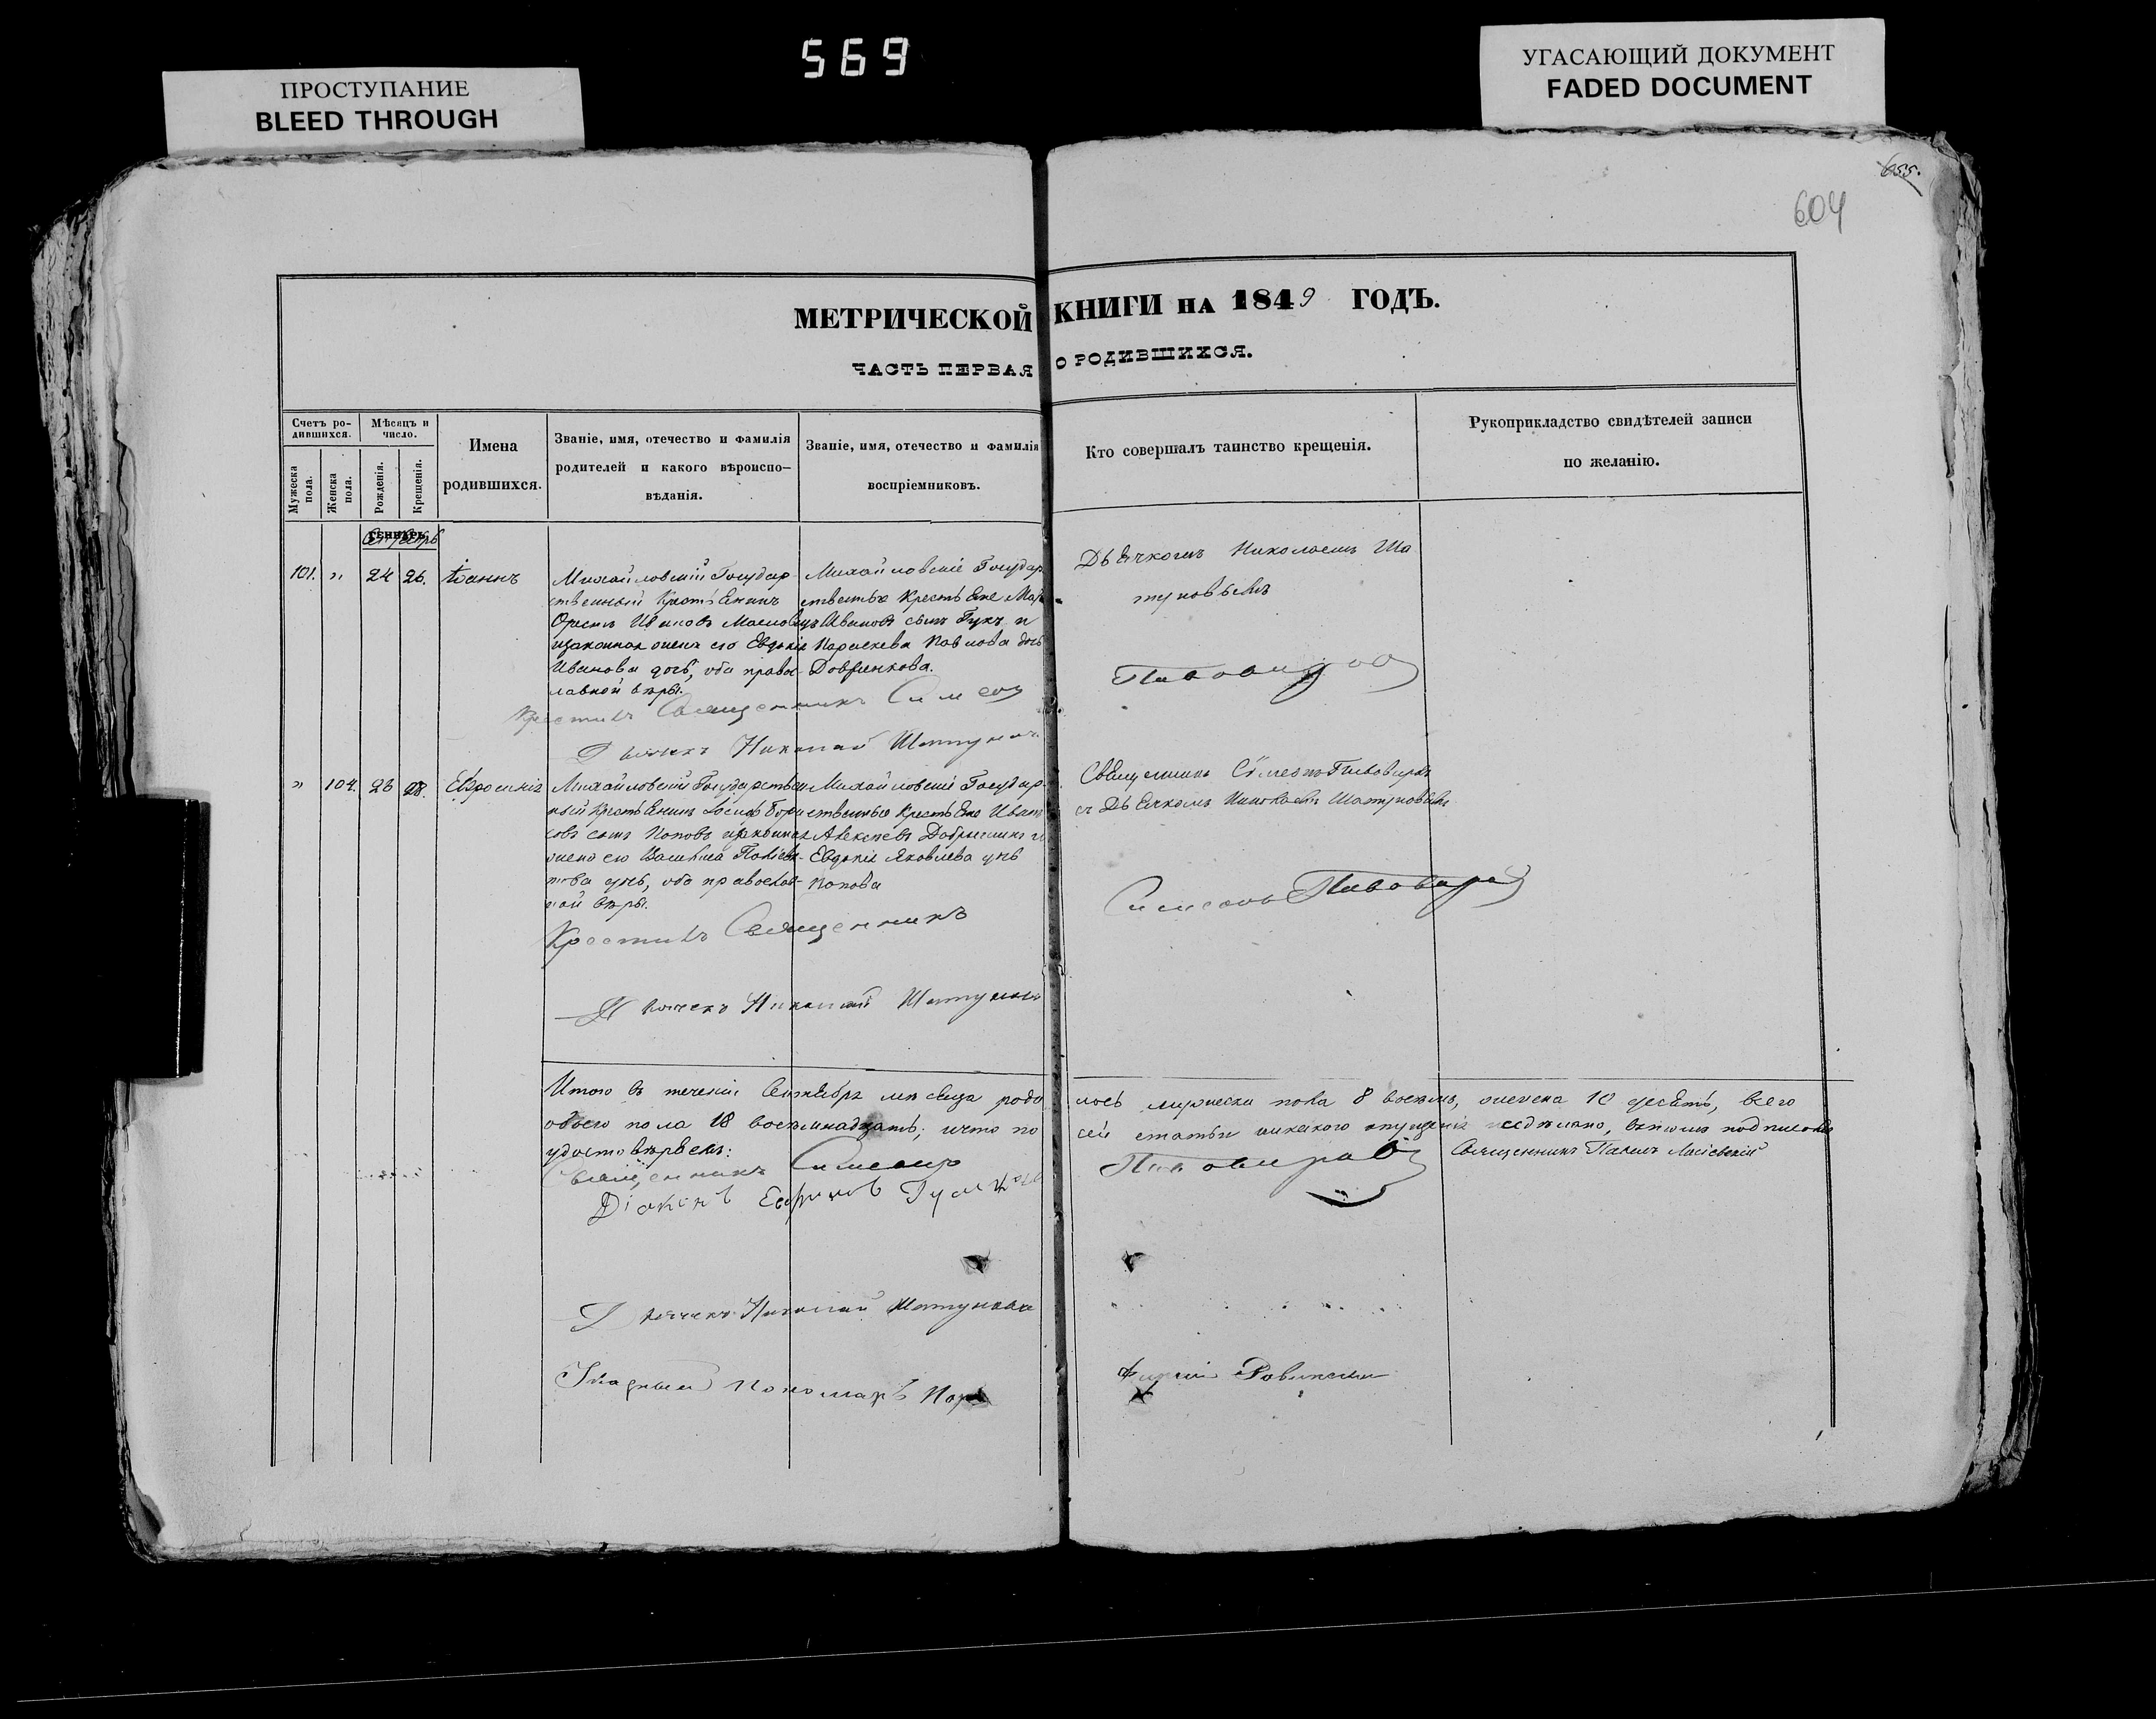 569
ПРОСТУПАНИЕ
BLEED THROUGH
УГАСАЮЩИЙ ДОКУМЕНТ
FADED DOCUMENT
655.
604
МЕТРИЧЕСКОЙ КНИГИ НА 1849 ГОДЪ.
ЧАСТЬ ПЕРВАЯ О РОДИВШИХСЯ.
Счетъ ро-
дившихся.
Мужеска пола.
Женска пола.
Мѣсяцъ и
число.
Рожденія.
Крещенія.
Имена
родившихся.
Званіе, имя, отечество и фамилія
родителей и какого вѣроиспо-
вѣданія.
Званіе, имя, отечество и фамилія
воспріемниковъ.
Кто совершалъ таинство крещенія.
Рукоприкладство свидѣтелей записи
по желанію.
101. " 24 26. Іоаннъ
Михайловскій Государ
ственный Крестьянинъ
Ивановъ
изаконная жена его Евдокія
Иванова дочь, оба право-
лавной вѣры.
Михайловскіе Государ
ственные Крестьяне
Ивановъ сынъ Гукъ и
Параскева Павлова дочь
Довженкова.
Дьячкомъ Николаемъ Ша
туновымъ
Крестилъ Священникъ Симеон Пивоваров
Дьячекъ Николай Шатунов
" 104. 26 28. Евфросинія
Михайловскій Государствен
ный Крестьянинъ Іосифъ Бори
совъ сынъ Поповъ изаконная
жена его
това дочь, оба православ-
ной вѣры.
Михайловскіе Государ
ственные Крестьяне Иванъ
Алексѣевъ и
Евдокія Яковлева дочь
Попова
Священникъ Симеонъ Пивоваровъ
съ Дьячкомъ Николаемъ Шатуновымъ
Крестилъ Священникъ
Симеонъ Пивоваров
Дьячекъ Николай Шатунов
Итого въ теченіи Сентября мѣсяца роди лось мужеска пола 8 восемь, женска 10 десять, всего
обоего пола 18 восемнадцать; что по сей статьи никакого опущенія несдѣлано, въ томъ подписомъ
удостовѣряемъ:
Священникъ Симеонъ Пивоваров
Священникъ Павелъ
Діаконъ
Дьячекъ Николай Шатунов
Пономарь